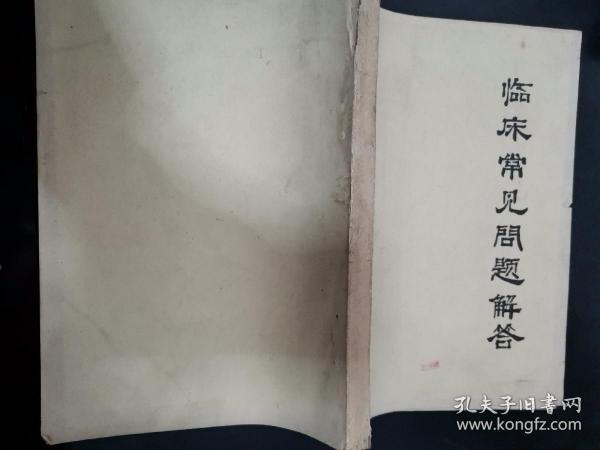 临床常见問题解答
孔夫子旧书网
www.kongfz.com